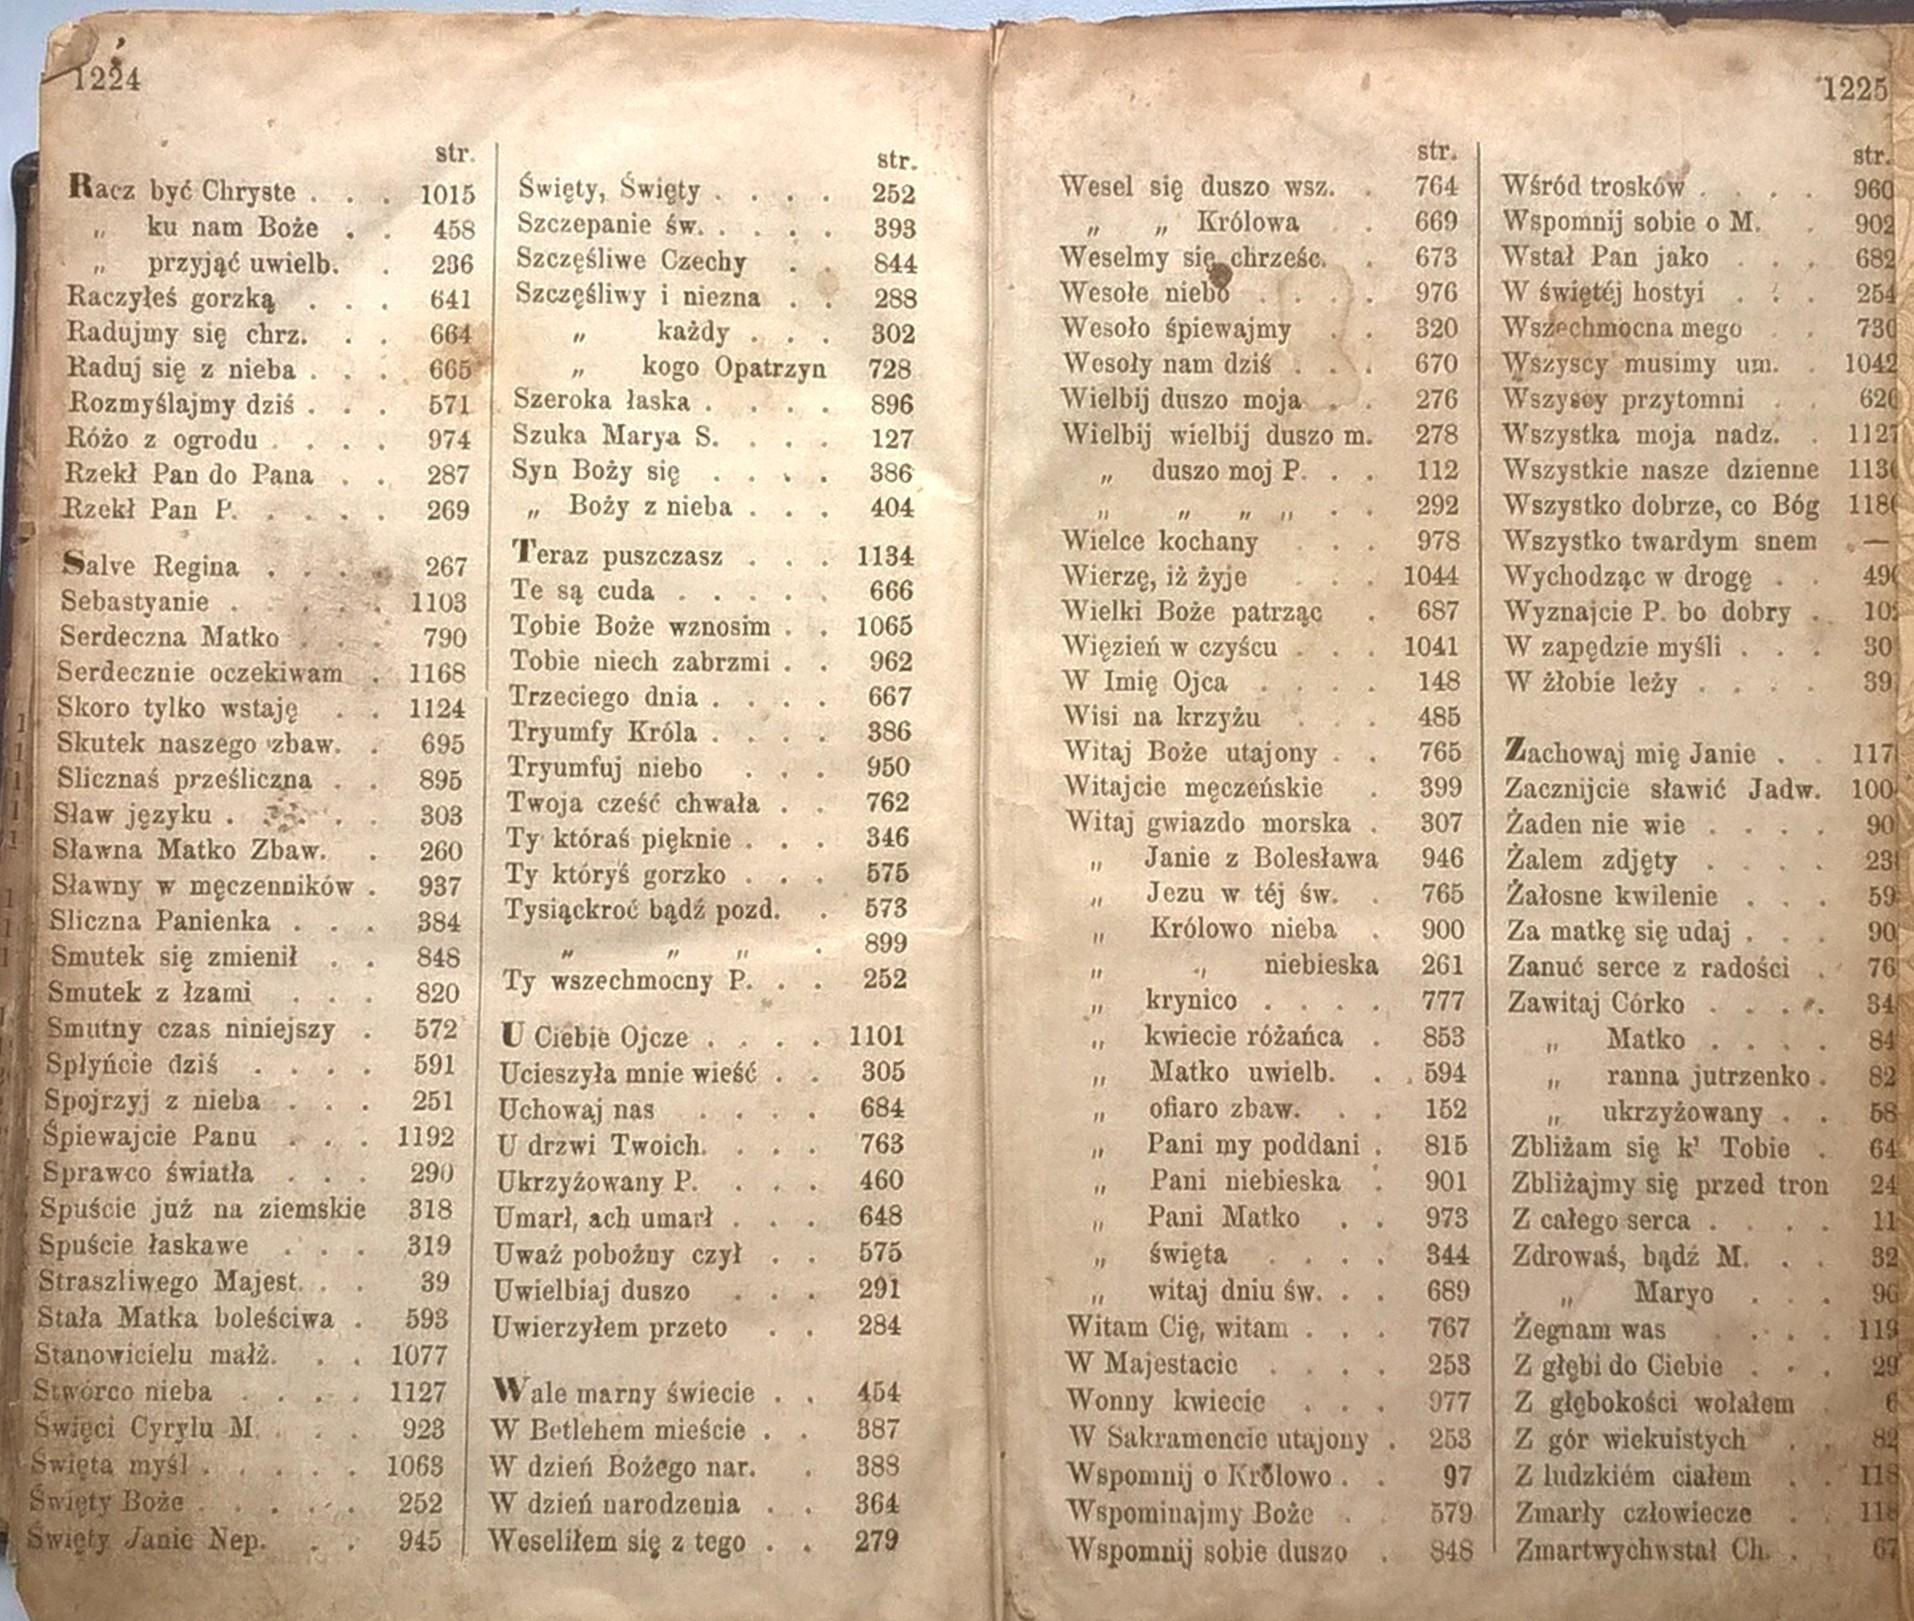 1224
str.
Racz być Chryste . . . 1015
„ ku nam Boże . . 458
„ przyjąć uwielb. . 236
Raczyłeś gorzką . . . 641
Radujmy się chrz. . . 664
Raduj się z nieba . . . 665
Rozmyślajmy dziś . . . 571
Różo z ogrodu . . . . 974
Rzekł Pan do Pana . . 287
Rzekł Pan P. . . . . 269
Salve Regina . . . . 267
Sebastyanie . . . . . 1103
Serdeczna Matko . . . 790
Serdecznie oczekiwam . 1168
Skoro tylko wstaję . . 1124
Skutek naszego zbaw. . 695
Slicznaś prześliczna . . 895
Sław języku . . . . 303
Sławna Matko Zbaw. . 260
Sławny w męczenników . 937
Sliczna Panienka . . . 384
Smutek się zmienił . . 848
Smutek z łzami . . . 820
Smutny czas niniejszy . 572
Spłyńcie dziś . . . . 591
Spojrzyj z nieba . . . 251
Śpiewajcie Panu . . . 1192
Sprawco światła . . . 290
Spuście już na ziemskie 318
Spuście łaskawe . . . 319
Straszliwego Majest. . . 39
Stała Matka boleściwa . 593
Stanowicielu małż. . . 1077
Stwórco nieba . . . . 1127
Święci Cyrylu M. . . . 923
Święta myśl . . . . . 1063
Święty Boże . . . . . 252
Święty Janie Nep. . . 945
str.
Święty, Święty . . . . 252
Szczepanie św. . . . . 393
Szczęśliwe Czechy . . 844
Szczęśliwy i niezna . . 288
„ każdy . . . 302
„ kogo Opatrzyn 728
Szeroka łaska . . . . 896
Szuka Marya S. . . . 127
Syn Boży się . . . . 386
„ Boży z nieba . . . 404
Teraz puszczasz . . . 1134
Te są cuda . . . . . 666
Tobie Boże wznosim . . 1065
Tobie niech zabrzmi . . 962
Trzeciego dnia . . . . 667
Tryumfy Króla . . . . 386
Tryumfuj niebo . . . 950
Twoja cześć chwała . . 762
Ty któraś pięknie . . . 346
Ty któryś gorzko . . . 575
Tysiąckroć bądź pozd. . 573
„ „ „ . 899
Ty wszechmocny P. . . 252
U Ciebie Ojcze . . . . 1101
Ucieszyła mnie wieść . . 305
Uchowaj nas . . . . 684
U drzwi Twoich. . . . 763
Ukrzyżowany P. . . . 460
Umarł, ach umarł . . . 648
Uważ pobożny czył . . 575
Uwielbiaj duszo . . . 291
Uwierzyłem przeto . . 284
Wale marny świecie . . 454
W Betlehem mieście . . 387
W dzień Bożego nar. . 388
W dzień narodzenia . . 364
Weseliłem się z tego . . 279
1225
str.
Wesel się duszo wsz. . 764
„ „ Królowa . 669
Weselmy się chrześc. . 673
Wesołe niebo . . . . 976
Wesoło śpiewajmy . . 320
Wesoły nam dziś . . . 670
Wielbij duszo moja . . 276
Wielbij wielbij duszo m. 278
„ duszo moj P. . . 112
„ „ „ „ . . 292
Wielce kochany . . . 978
Wierzę, iż żyje . . . 1044
Wielki Boże patrząc . 687
Więzień w czyścu . . . 1041
W Imię Ojca . . . . 148
Wisi na krzyżu . . . 485
Witaj Boże utajony . . 765
Witajcie męczeńskie . 399
Witaj gwiazdo morska . 307
„ Janie z Bolesława 946
„ Jezu w téj św. . 765
„ Królowo nieba . 900
„ „ niebieska 261
„ krynico . . . . 777
„ kwiecie różańca . 853
„ Matko uwielb. . . 594
„ ofiaro zbaw. . . 152
„ Pani my poddani . 815
„ Pani niebieska . 901
„ Pani Matko . . 973
„ święta . . . . 344
„ witaj dniu św. . . 689
Witam Cię, witam . . . 767
W Majestacie . . . . 253
Wonny kwiecie . . . 977
W Sakramencie utajony . 253
Wspomnij o Królowo . . 97
Wspominajmy Boże . . 579
Wspomnij sobie duszo . 848
str.
Wśród trosków . . . . 960
Wspomnij sobie o M. . 902
Wstał Pan jako . . . 682
W świętéj hostyi . . . 254
Wszechmocna mego . . 730
Wszyscy musimy um. . 1042
Wszyscy przytomni . .
Wszystka moja nadz. . 1127
Wszystkie nasze dzienne
Wszystko dobrze, co Bóg
Wszystko twardym snem . —
Wychodząc w drogę . .
Wyznajcie P. bo dobry .
W zapędzie myśli . . .
W żłobie leży . . . .
Zachowaj mię Janie . .
Zacznijcie sławić Jadw.
Żaden nie wie . . . .
Żalem zdjęty . . . .
Żałosne kwilenie . . .
Za matkę się udaj . . .
Zanuć serce z radości .
Zawitaj Córko . . . .
„ Matko . . . .
„ ranna jutrzenko .
„ ukrzyżowany . .
Zbliżam się k' Tobie .
Zbliżajmy się przed tron
Z całego serca . . . .
Zdrowaś, bądź M. . .
„ Maryo . . .
Żegnam was . . . .
Z głębi do Ciebie . . .
Z głębokości wołałem .
Z gór wiekuistych . .
Z ludzkiém ciałem . .
Zmarły człowiecze . .
Zmartwychwstał Ch. .